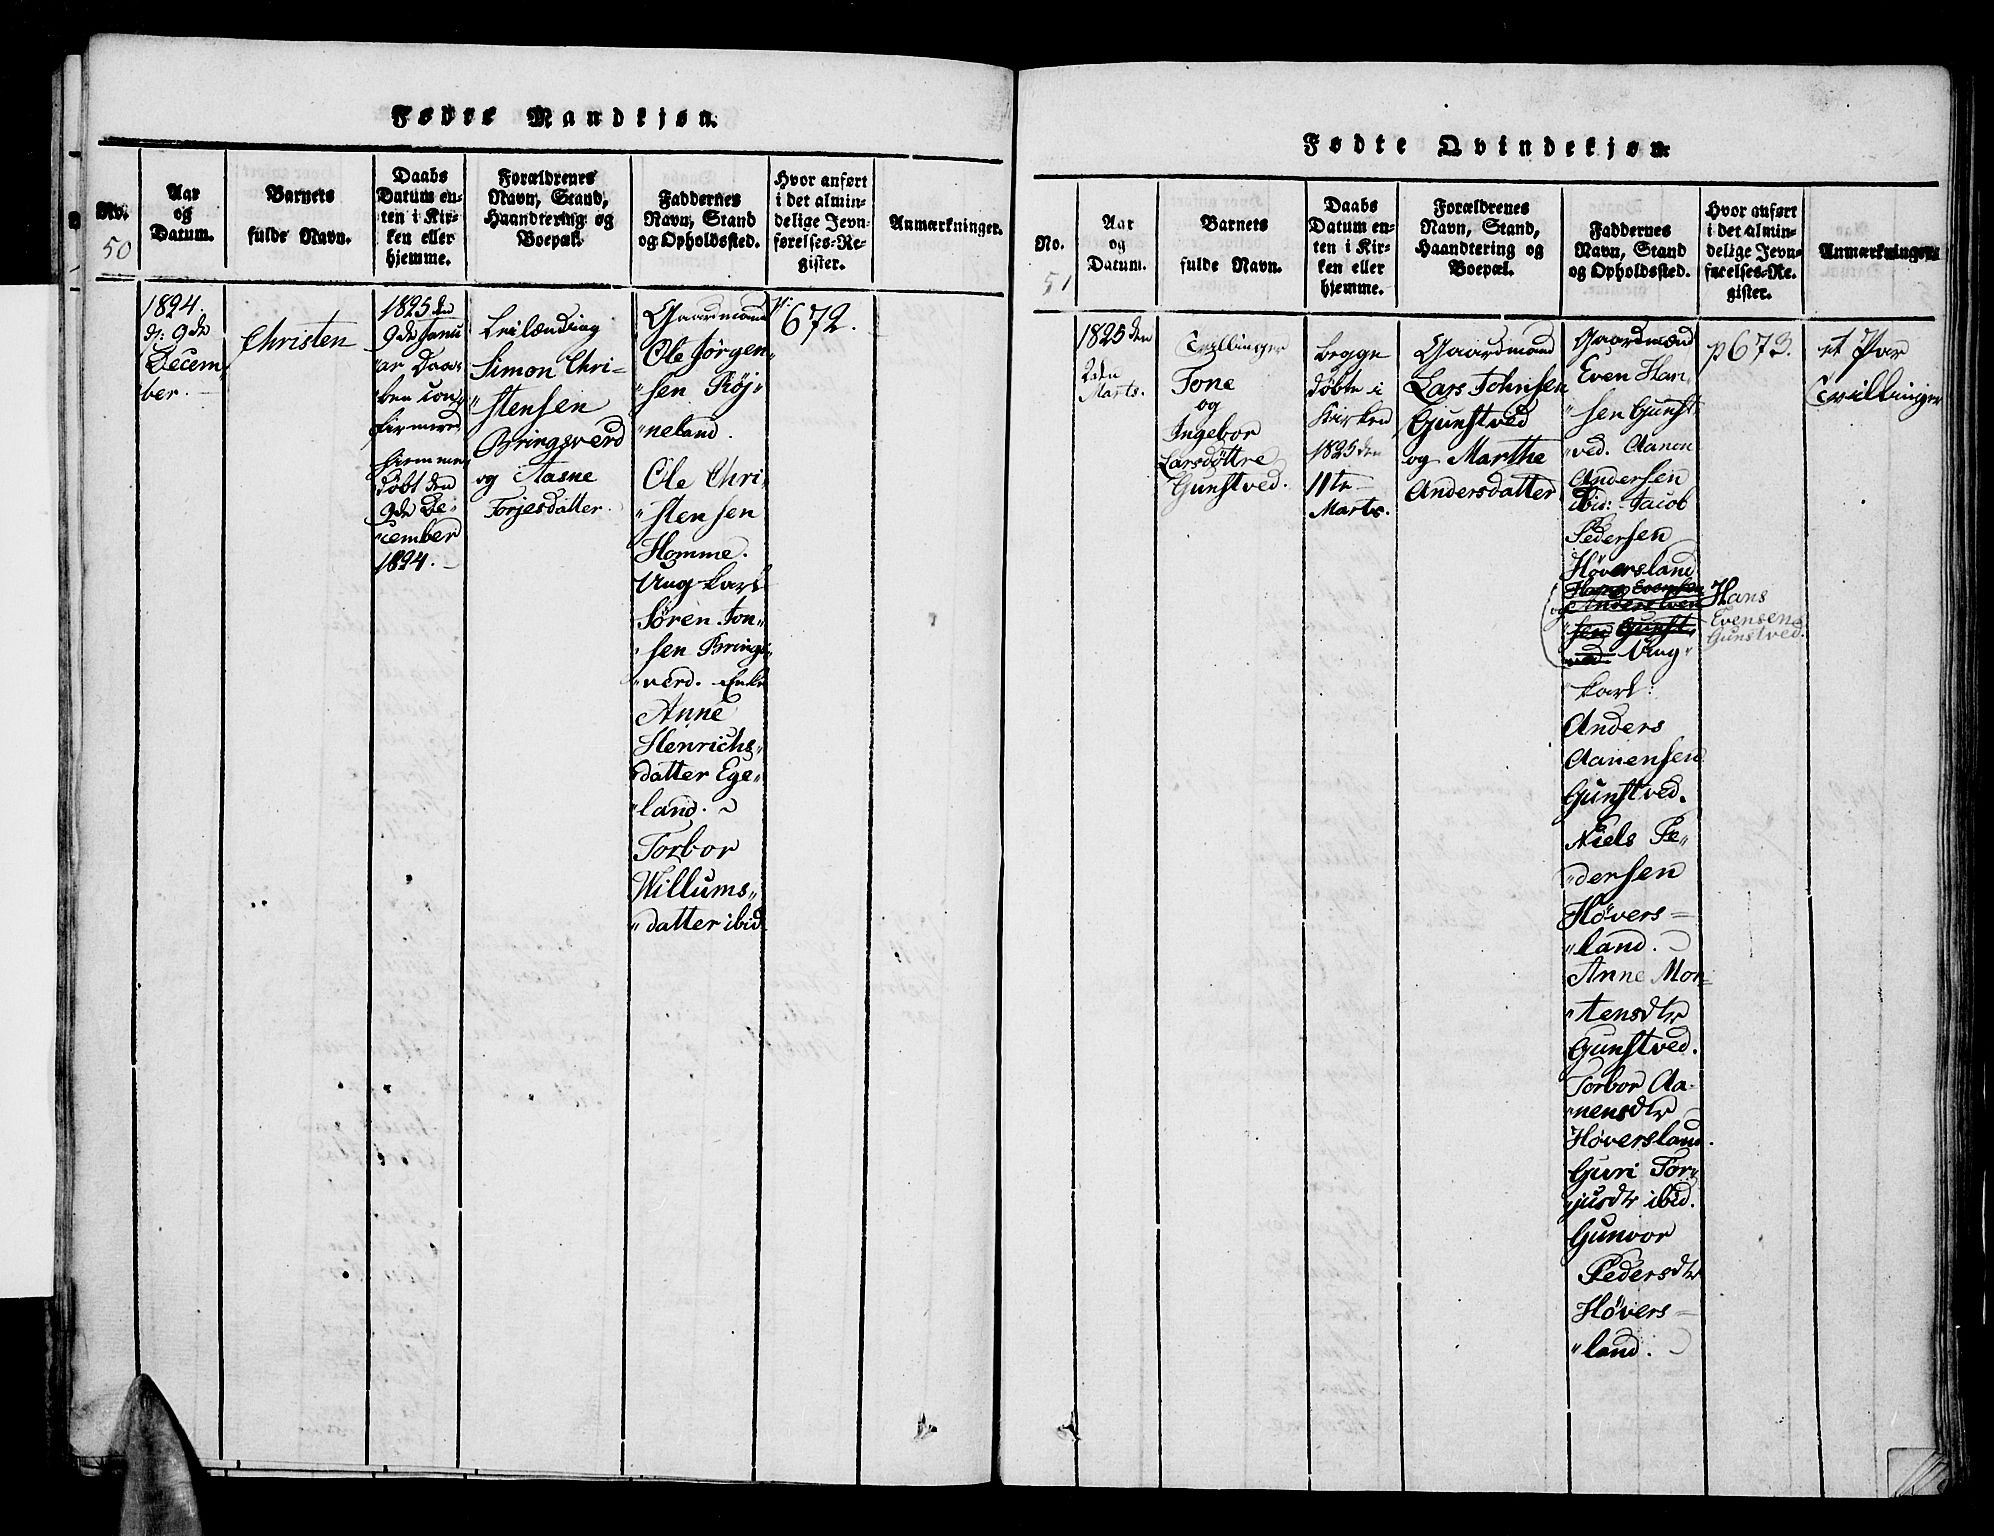 Fødte Mandkjøn.
No.
50
Aar
og
Datum.
Barnets
fulde Navn.
Daabs
Datum en-
ten i Kir-
ken eller
hjemme.
Forældrenes
Navn, Stand,
Haandtering og
Boepæl.
Faddernes
Navn, Stand
og Opholdssted.
Hvor anført
i det almin-
delige Jevn-
førelses-Re-
gister.
Anmærkninger.
1824.
d: 9de
Decem„
ber.
Christen
1825 den
9de Janu
„ar Daa-
ben con„
firmered
hiemme
døbt den
9de De-
„cember
1824.
Leilænding
Simon Chri-
„stensen
Bringsverd
og Aasne
Torjesdatter.
Gaardmænd
Ole Jørgen-
„sen Røj„
„neland.
Ole Chri-
„stensen
Homme.
Ung karl
Søren Jon-
„sen Brings-
„verd. Enke
Anne
Henrichs-
datter Ege-
„land.
Torbor
Willums„
„datter ibid.
p: 672.
Fødte Qvindekjøn.
No.
51
Aar
og
Datum.
Barnets
fulde Navn.
Daabs
Datum en-
ten i Kir-
ken eller
hjemme.
Forældrenes
Navn, Stand,
Haandtering og
Boepæl.
Faddernes
Navn, Stand
og Opholdssted.
Hvor anført
i det almin-
delige Jevn-
førelses-Re-
gister.
Anmærkninger.
1825 den
2den
Marts.
Tvillinger
Tone
og
Ingebor
Larsdøttre
Gunstved.
begge
døbte i
Kirken
1825 den
11te
Marts.
Gaardmand
Lars Johnsen
Gunstved
og Marthe
Andersdatter
Gaardmænd
Even Han„
„sen Gunst„
„ved. Aanen
Andersen
ibid: Jacob
Pedersen
Høversland
Hans Evensen
og Anders Even
„sen Gunst„
ved. Ung„
karl:
Anders
Aanensen
Gunstved.
Niels Pe„
„dersen
Høvers-
„land.
Anne Mor-
„tensdtr
Gunstved.
Torbor Aa-
„nensdtr
Høversland.
Guri Tor„
„jusdtr ibid.
Gunvor
Pedersdtr
Høvers-
„land.
p673.
Hans
Evensen
Gunstved.
et Par
Tvillinger